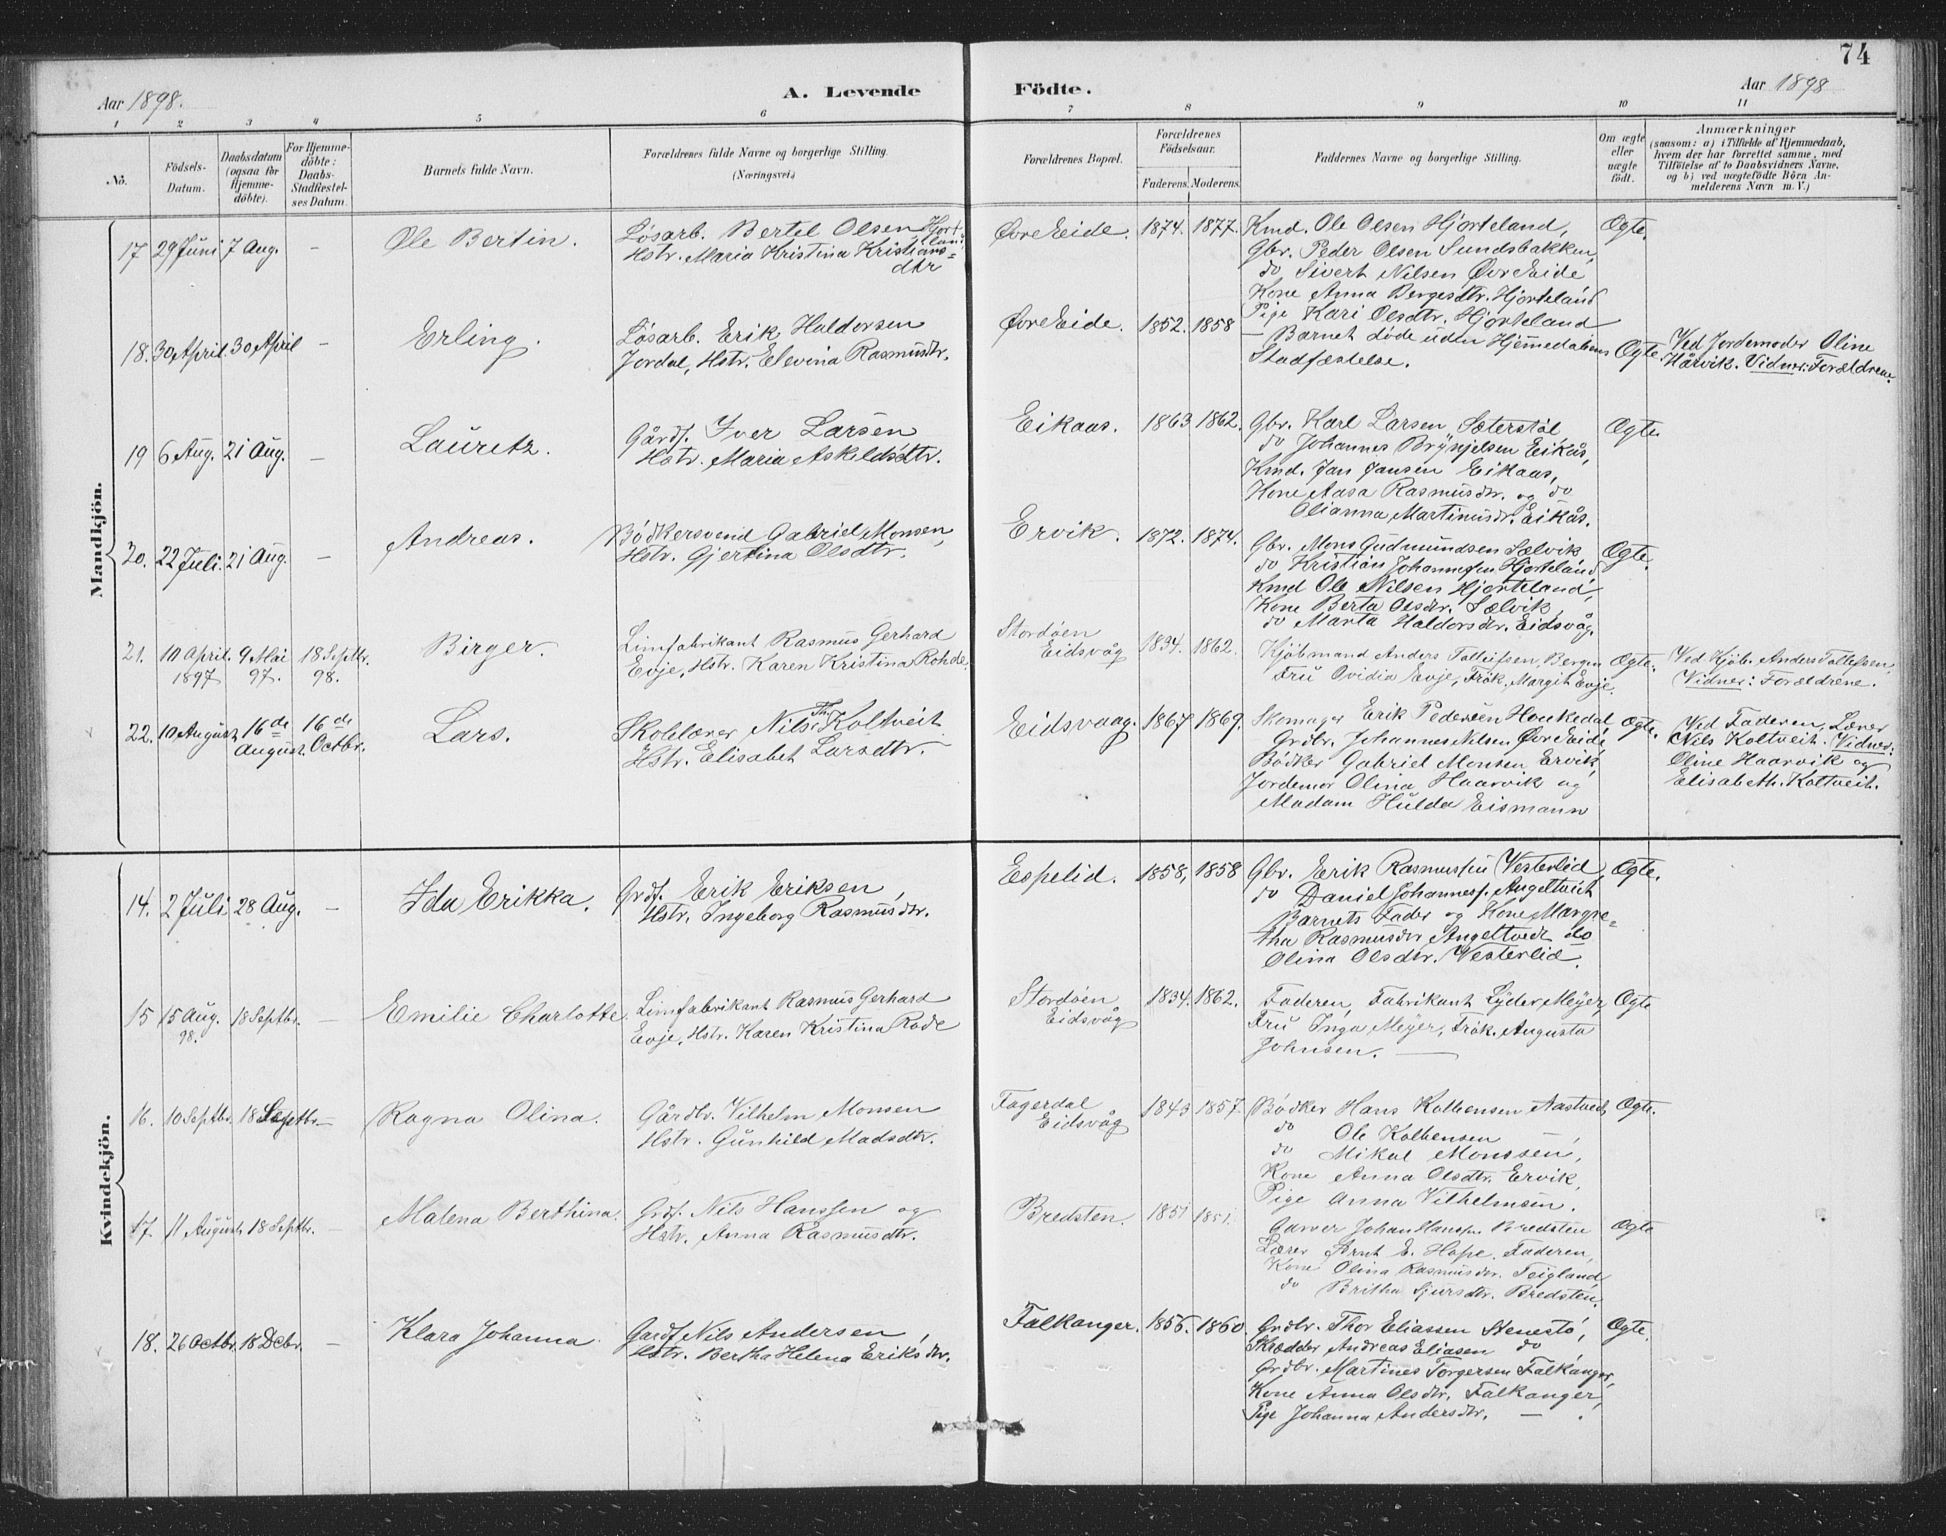 74
Aar 1898.
A. Levende
Födte.
Aar 1898
1 2 3 4 5 6 7 8 9 10 11
No.
Födsels-
Datum.
Daabsdatum
(ogsaa for
Hjemme-
döbte).
For Hjemme-
döbte:
Daabs-
Stadfæstel-
ses Datum.
Barnets fulde Navn.
Forældrenes fulde Navne og borgerlige Stilling.
(Næringsvei.)
Forældrenes Bopæl.
Forældrenes
Födselsaar.
Faderens. Moderens.
Faddernes Navne og borgerlige Stilling.
Om ægte
eller
uægte
födt.
Anmærkninger
(saasom: a) i Tilfælde af Hjemmedaab,
hvem der har forrettet samme, med
Tilföielse af to Daabsvidners Navne,
og b) ved uægtefödte Börn An-
melderens Navn m. V.)
Mandkjön.
17 29 Juni 7 Aug. – Ole Bertin.
Løsarb. Bertel Olsen Hjort-
land,
Hstr. Maria Kristina Kristians=
dtr
Øvre Eide. 1874. 1877.
Kmd. Ole Olsen Hjorteland,
Gbr. Peder Olsen Sundsbakken,
do Sivert Nilsen Øvre Eide
Kone Anna Bergesdtr. Hjorteland
Pige Kari Olsdtr. Hjorteland
Ogte.
18. 30 April. 30 April – Erling.
Løsarb. Erik Haldorsen
Jordal, Hstr. Elevina Rasmusdtr.
Øvre Eide. 1852. 1858
– Barnet døde uden Hjemmedaabens
Stadfæstelse.
Ogte.
Ved Jordemoder Oline
Hårvik. Vidner: Forældrene.
19 6 Aug. 21 Aug. – Lauretz.
Gårdf. Iver Larsen
Hstr. Maria Askildsdtr.
Eikaas. 1863 1862.
Gbr. Karl Larsen Sæterstøl
do Johannes Brynjelsen Eikås,
Kmd. Jan Jansen Eikaas,
Kone Aasa Rasmusdtr. og do
Olianna Martinusdtr. Eikås.
Ogte.
20. 22 Juli. 21 Aug. – Andreas.
Bødkersvend Gabriel Monsen,
Hstr. Gjertina Olsdtr.
Ervik. 1872. 1874.
Gbr. Mons Gudmundsen Sælvik,
do Kristian Johannesen Hjorteland,
Kmd Ole Nilsen Hjorteland,
Kone Berta Olsdtr. Sælvik,
do Marta Haldorsdtr. Eidsvåg.
Ogte.
21. 10 April. 1897 9 Mai 97. 18 Septbr. 98. Birger.
Limfabrikant Rasmus Gerhard
Evje, Hstr. Karen Kristina Rohde.
Stordøen
Eidsvåg
1834. 1862.
Kjøbmand Anders Tollefsen, Bergen
Fru Ovidia Evje, Frøk. Margit Evje.
Ogte.
Ved Kjøb. Anders Tollefsen,
Vidner: Forældrene.
22. 10 August, 16de August. 16de Octbr. Lars.
Skolelærer Nils Th. Koltveit
Hstr. Elisabet Larsdtr.
Eidsvaag. 1867. 1869.
Skomager Erik Pedersen Haukedal
Grdbr. Johannes Nilsen Øvre Eide,
Bødker Gabriel Monsen Ervik,
Jordemor Olina Haarvik og
Madam Hulda Eismann
Ogte.
Ved Faderen, Lærer
Nils Koltveit. Vidner:
Oline Haarvik og
Elisabeth Koltveit.
Kvindekjön.
14. 2 Juli 28 Aug. – Ida Erikka.
Grdf. Erik Eriksen,
Hstr. Ingeborg Rasmusdtr.
Espelid. 1858, 1858
Gbr. Erik Rasmussen Vesterlid,
do Daniel Johannesf. Angeltveit
Barnets Fader og Kone Margre=
tha Rasmusdtr Angeltvedt do
Olina Olsdtr. Vesterlid.
Ogte.
15 15 Aug. 98. 18 Septbr. – Emilie Charlotte.
Limfabrikant Rasmus Gerhard
Evje, Hstr. Karen Kristina Rode
Stordøen
Eidsvåg
1834. 1862.
Faderen, Fabrikant Lyder Meyer,
Fru Inga Meyer, Frøk. Augusta
Johnsen. –
Ogte
16. 10 Septbr. 18 Septbr. – Ragna Olina.
Gårdbr. Vilhelm Monsen
Hstr. Gunhild Madsdtr.
Fagerdal
Eidsvåg
1843 1857.
Bødker Hans Kolbensen Aastvedt,
do Ole Kolbensen –,
do Mikal Monssen,
Kone Anna Olsdtr. Ervik,
Pige Anna Vilhelmsen.
Ogte.
17. 11 August. 18 Septbr. – Malena Berthina.
Grdf. Nils Hanssen og
Hstr. Anna Rasmusdtr.
Bredsten. 1851 1851.
Garver Johan Hansen Bredsten
Lærer Arnt E. Hope. Faderen,
Kone Olina Rasmusdtr. Teigland,
do Britha Sjursdtr. Bredsten.
Ogte
18. 26 Octbr. 18 Dcbr. – Klara Johanna.
Gardf. Nils Andersen,
Hstr. Bertha Helena Eriksdtr.
Falkanger. 1856. 1860.
Grdbr. Thor Eliassen Stenestø,
Skrædder Andreas Eliasen do
Grdbr. Martines Torgersen Falkanger,
Kone Anna Olsdtr. Falkanger,
Pige Johanna Andersdtr. – .
Ogte.